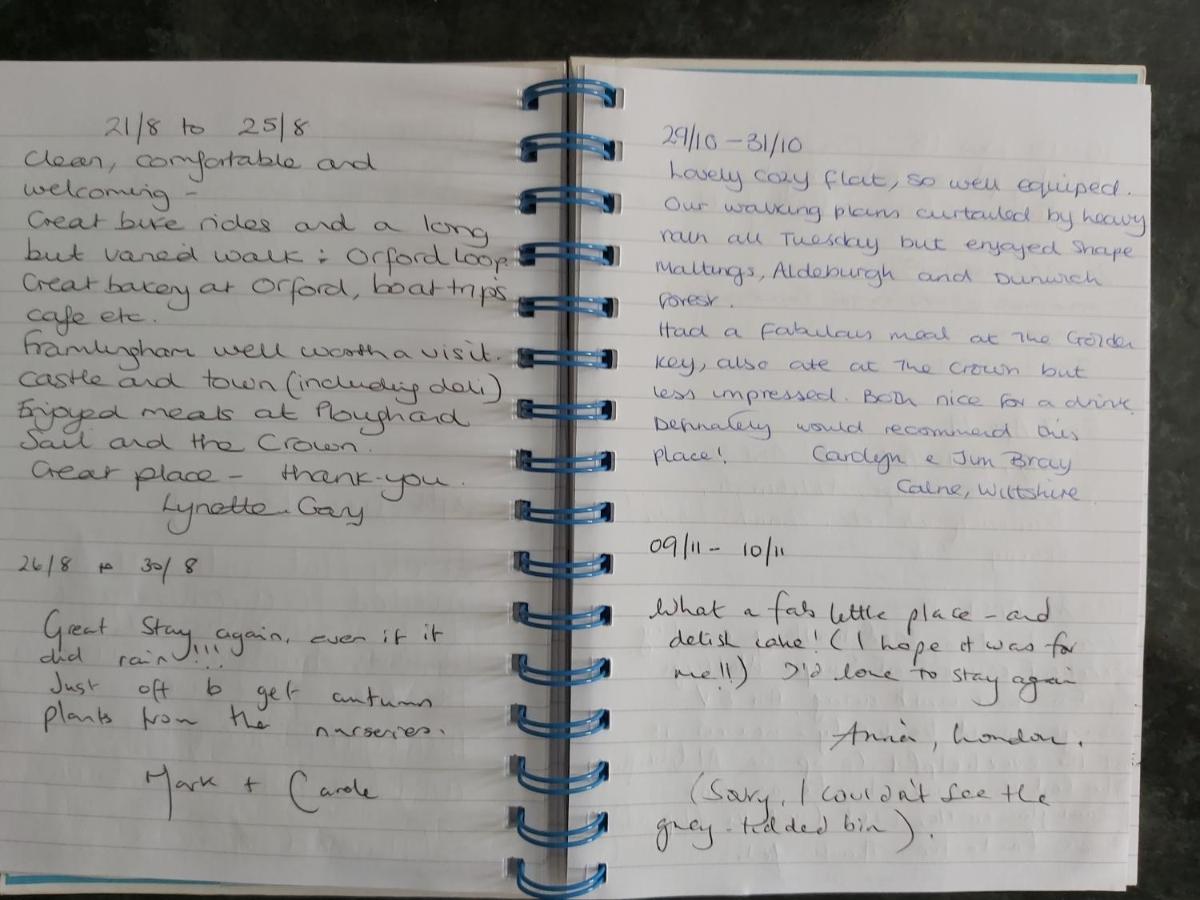 21/8 to 25/8
Clean, comfortable and
welcoming -
Great bike rides and a long
but varied walk : Orford loop.
Great bakery at Orford, boat trips,
cafe etc.
Framlingham well worth a visit.
Castle and town (including deli)
Enjoyed meals at Plough and
Sail and the Crown.
Great place - thank-you.
Lynette. Gary
26/8 to 30/8
Great Stay again, even if it
did rain!!!
Just off to get autumn
plants from the nurseries.
Mark + Carole
29/10 - 31/10
Lovely cozy flat, so well equiped.
Our walking plans curtailed by heavy
rain all Tuesday but enjoyed Snape
Maltings, Aldeburgh and Dunwich
Forest.
Had a fabulous meal at The Golden
Key, also ate at The Crown but
less impressed. Both nice for a drink.
Definately would recommend this
place! Carolyn & Jim Bray
Calne, Wiltshire
09/11 - 10/11
What a fab little place - and
delish cake! (I hope it was for
me!!) I'd love to stay again
Annia, London.
(Sorry, I couldn't see the
grey-lidded bin).